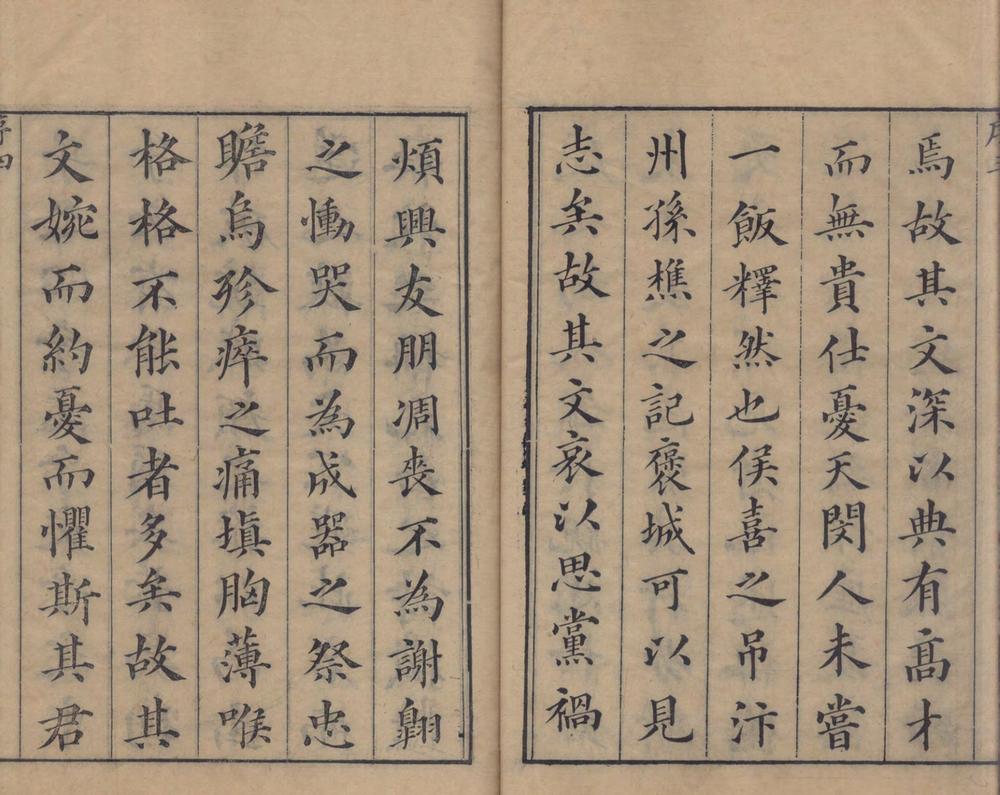 焉故其文深以典有高才
而無貴仕憂天閔人未嘗
一飯釋然也侯喜之吊汴
州孫樵之記褒城可以見
志矣故其文哀以思黨禍
煩興友朋凋喪不為謝翺
之慟哭而為成器之祭忠
瞻烏殄瘁之痛塡胸薄喉
格格不能吐者多矣故其
文婉而約憂而懼斯其君
序四